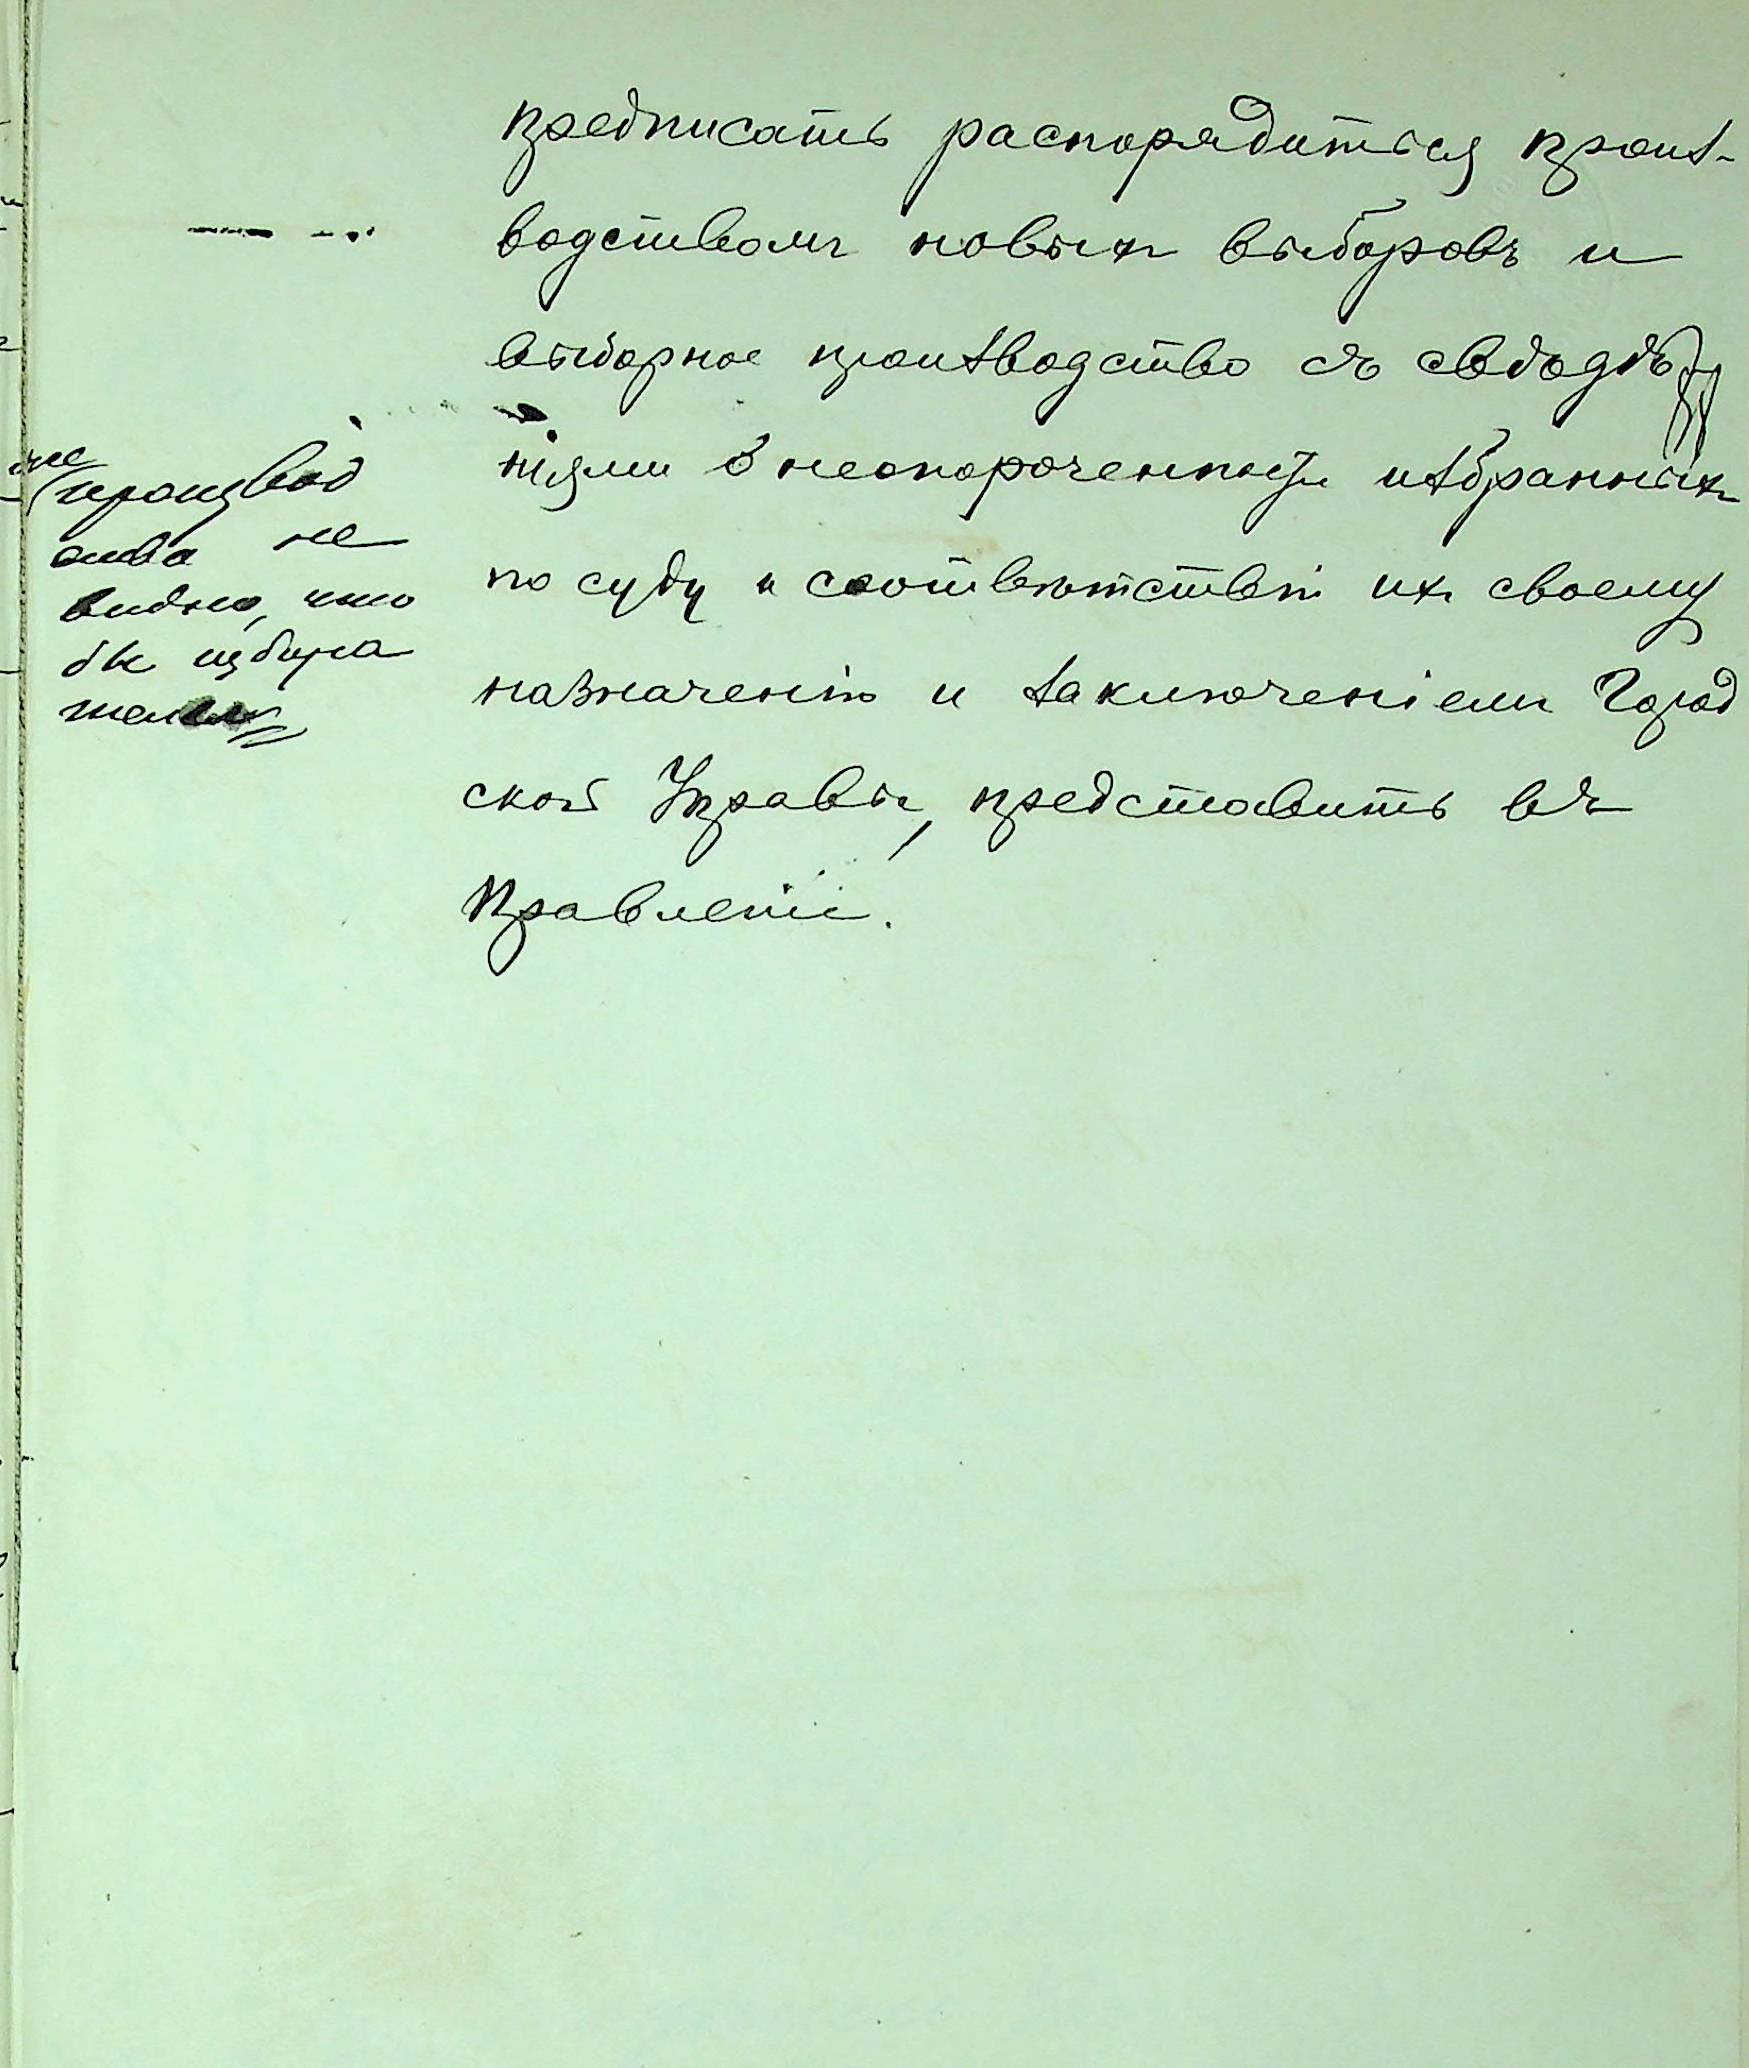 предписать распорядиться произ-
водствомъ новыхъ выборовъ и
выборное производство съ свѣдѣ
ніями о неопороченности избранныхъ
по суду и соотвѣтствіи ихъ своему
назначенію и заключеніемъ Город
ской Управы, представить въ
Правленіе.
производ
ства не
видно, что
бы избира
тели